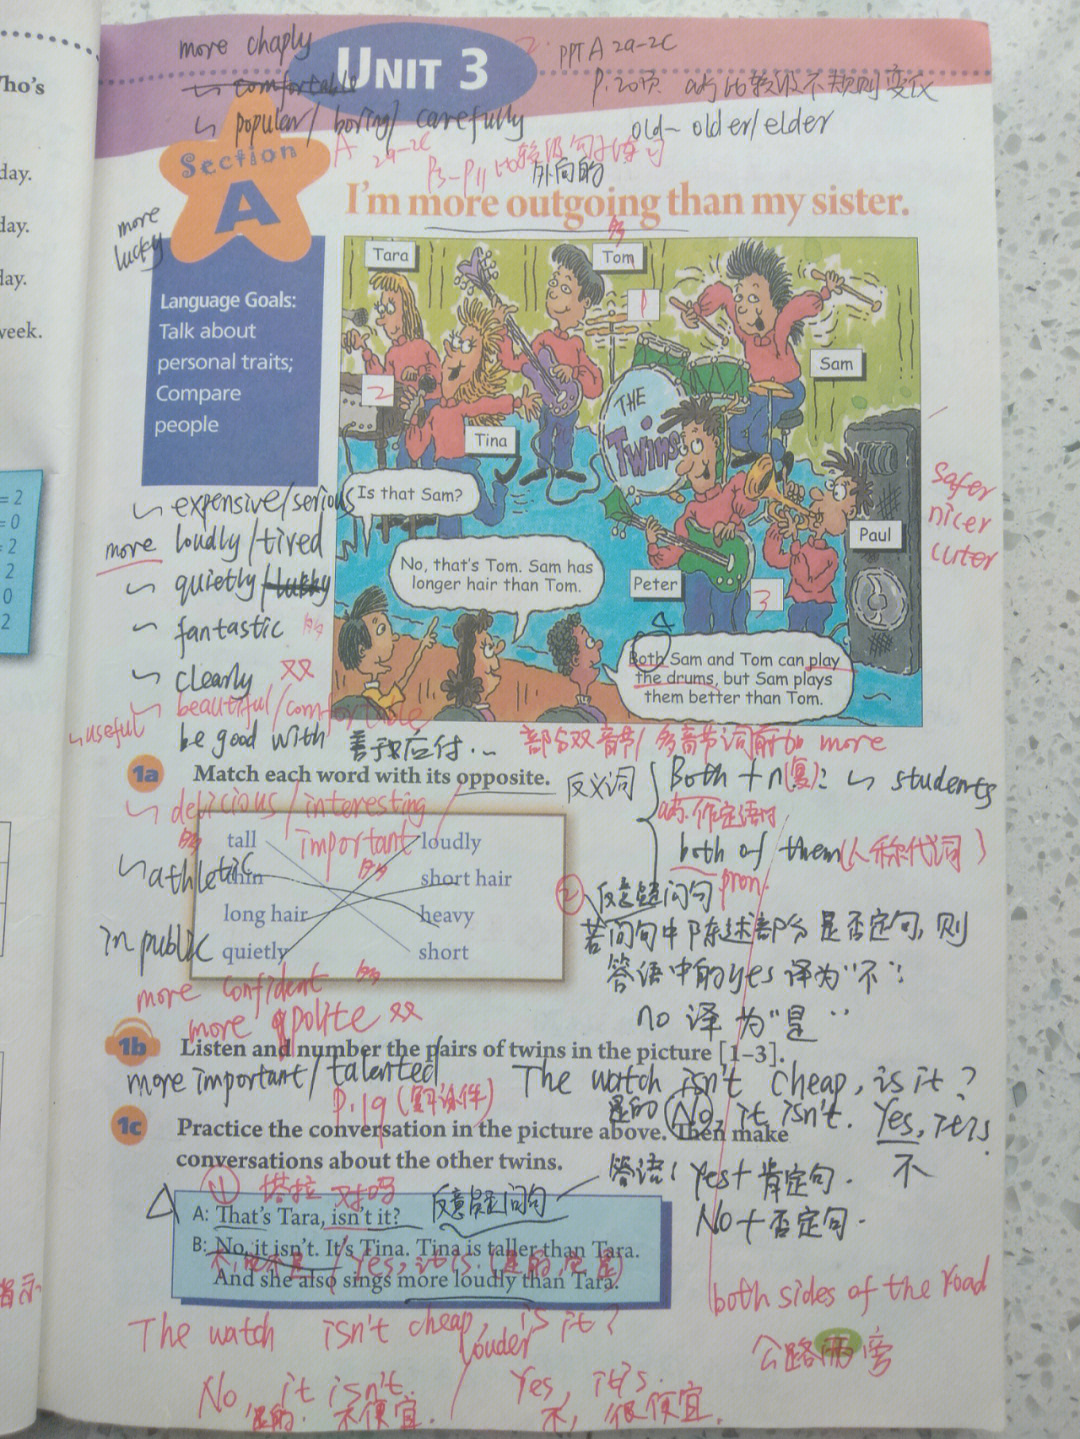 more chaply
UNIT 3
2. PPT A 2a-2c
comfortable
P.20页 的比较级不规则变化
popular/ boring/ carefully
old- older/elder
Section
A
A 2a-2c
外向的
I'm more outgoing than my sister.
more
lucky
Language Goals:
Talk about
personal traits;
Compare
people
Tara
Tom
1
Sam
2
THE
Twins
Tina
Is that Sam?
Paul
No, that's Tom. Sam has
longer hair than Tom.
Peter
3
Both Sam and Tom can play
the drums, but Sam plays
them better than Tom.
Safer
nicer
cuter
expensive/serious
more loudly/tired
quietly/lucky
fantastic 多
clearly 双
beautiful/comfortable
useful
be good with 善于应付...
部分双音节/多音节词前加 more
1a Match each word with its opposite. 反义词
Both + n(复): students
delicious/interesting
作定语时
important
both of them(人称代词)
pron.
tall
loudly
athletic
thin
short hair
long hair
heavy
quietly
short
in public
② 反意疑问句
若问句中陈述部分是否定句,则
答语中的yes译为"不";
no译为"是"
more confident 多
more polite 双
1b Listen and number the pairs of twins in the picture [1–3].
more important/talented
The watch isn't cheap, is it?
P.19(复习课件)
是的 No, it isn't. Yes, it is.
不
1c Practice the conversation in the picture above. Then make
conversations about the other twins.
答语: Yes+肯定句.
No+否定句.
① 塔拉 对吗
反意疑问句
A: That's Tara, isn't it?
B: No, it isn't. It's Tina. Tina is taller than Tara.
Yes, it is. (是的,它是)
And she also sings more loudly than Tara.
louder
both sides of the road
公路两旁
The watch isn't cheap, is it?
No, it isn't. / Yes, it is.
是的. 不便宜. 不, 很便宜.
ho's
day.
day.
day.
week.
= 2
= 0
= 2
2
0
2